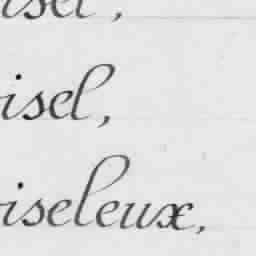 isel,
isel,
iseleux,